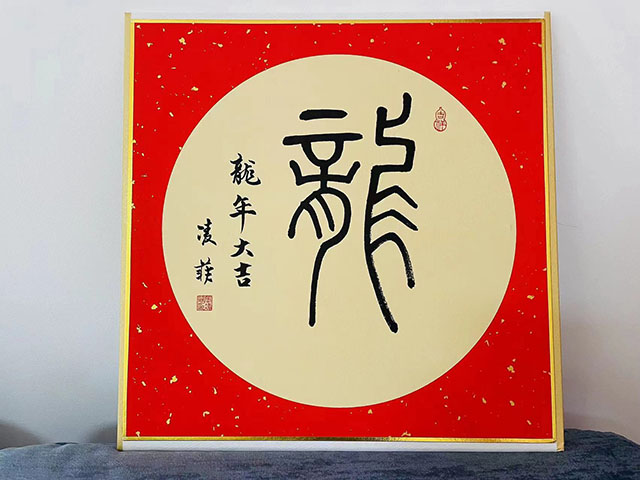 龍
龍年大吉
凌